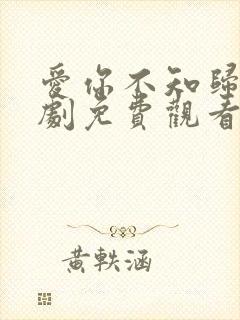 愛你不知歸
劇免費觀看
黃軼涵